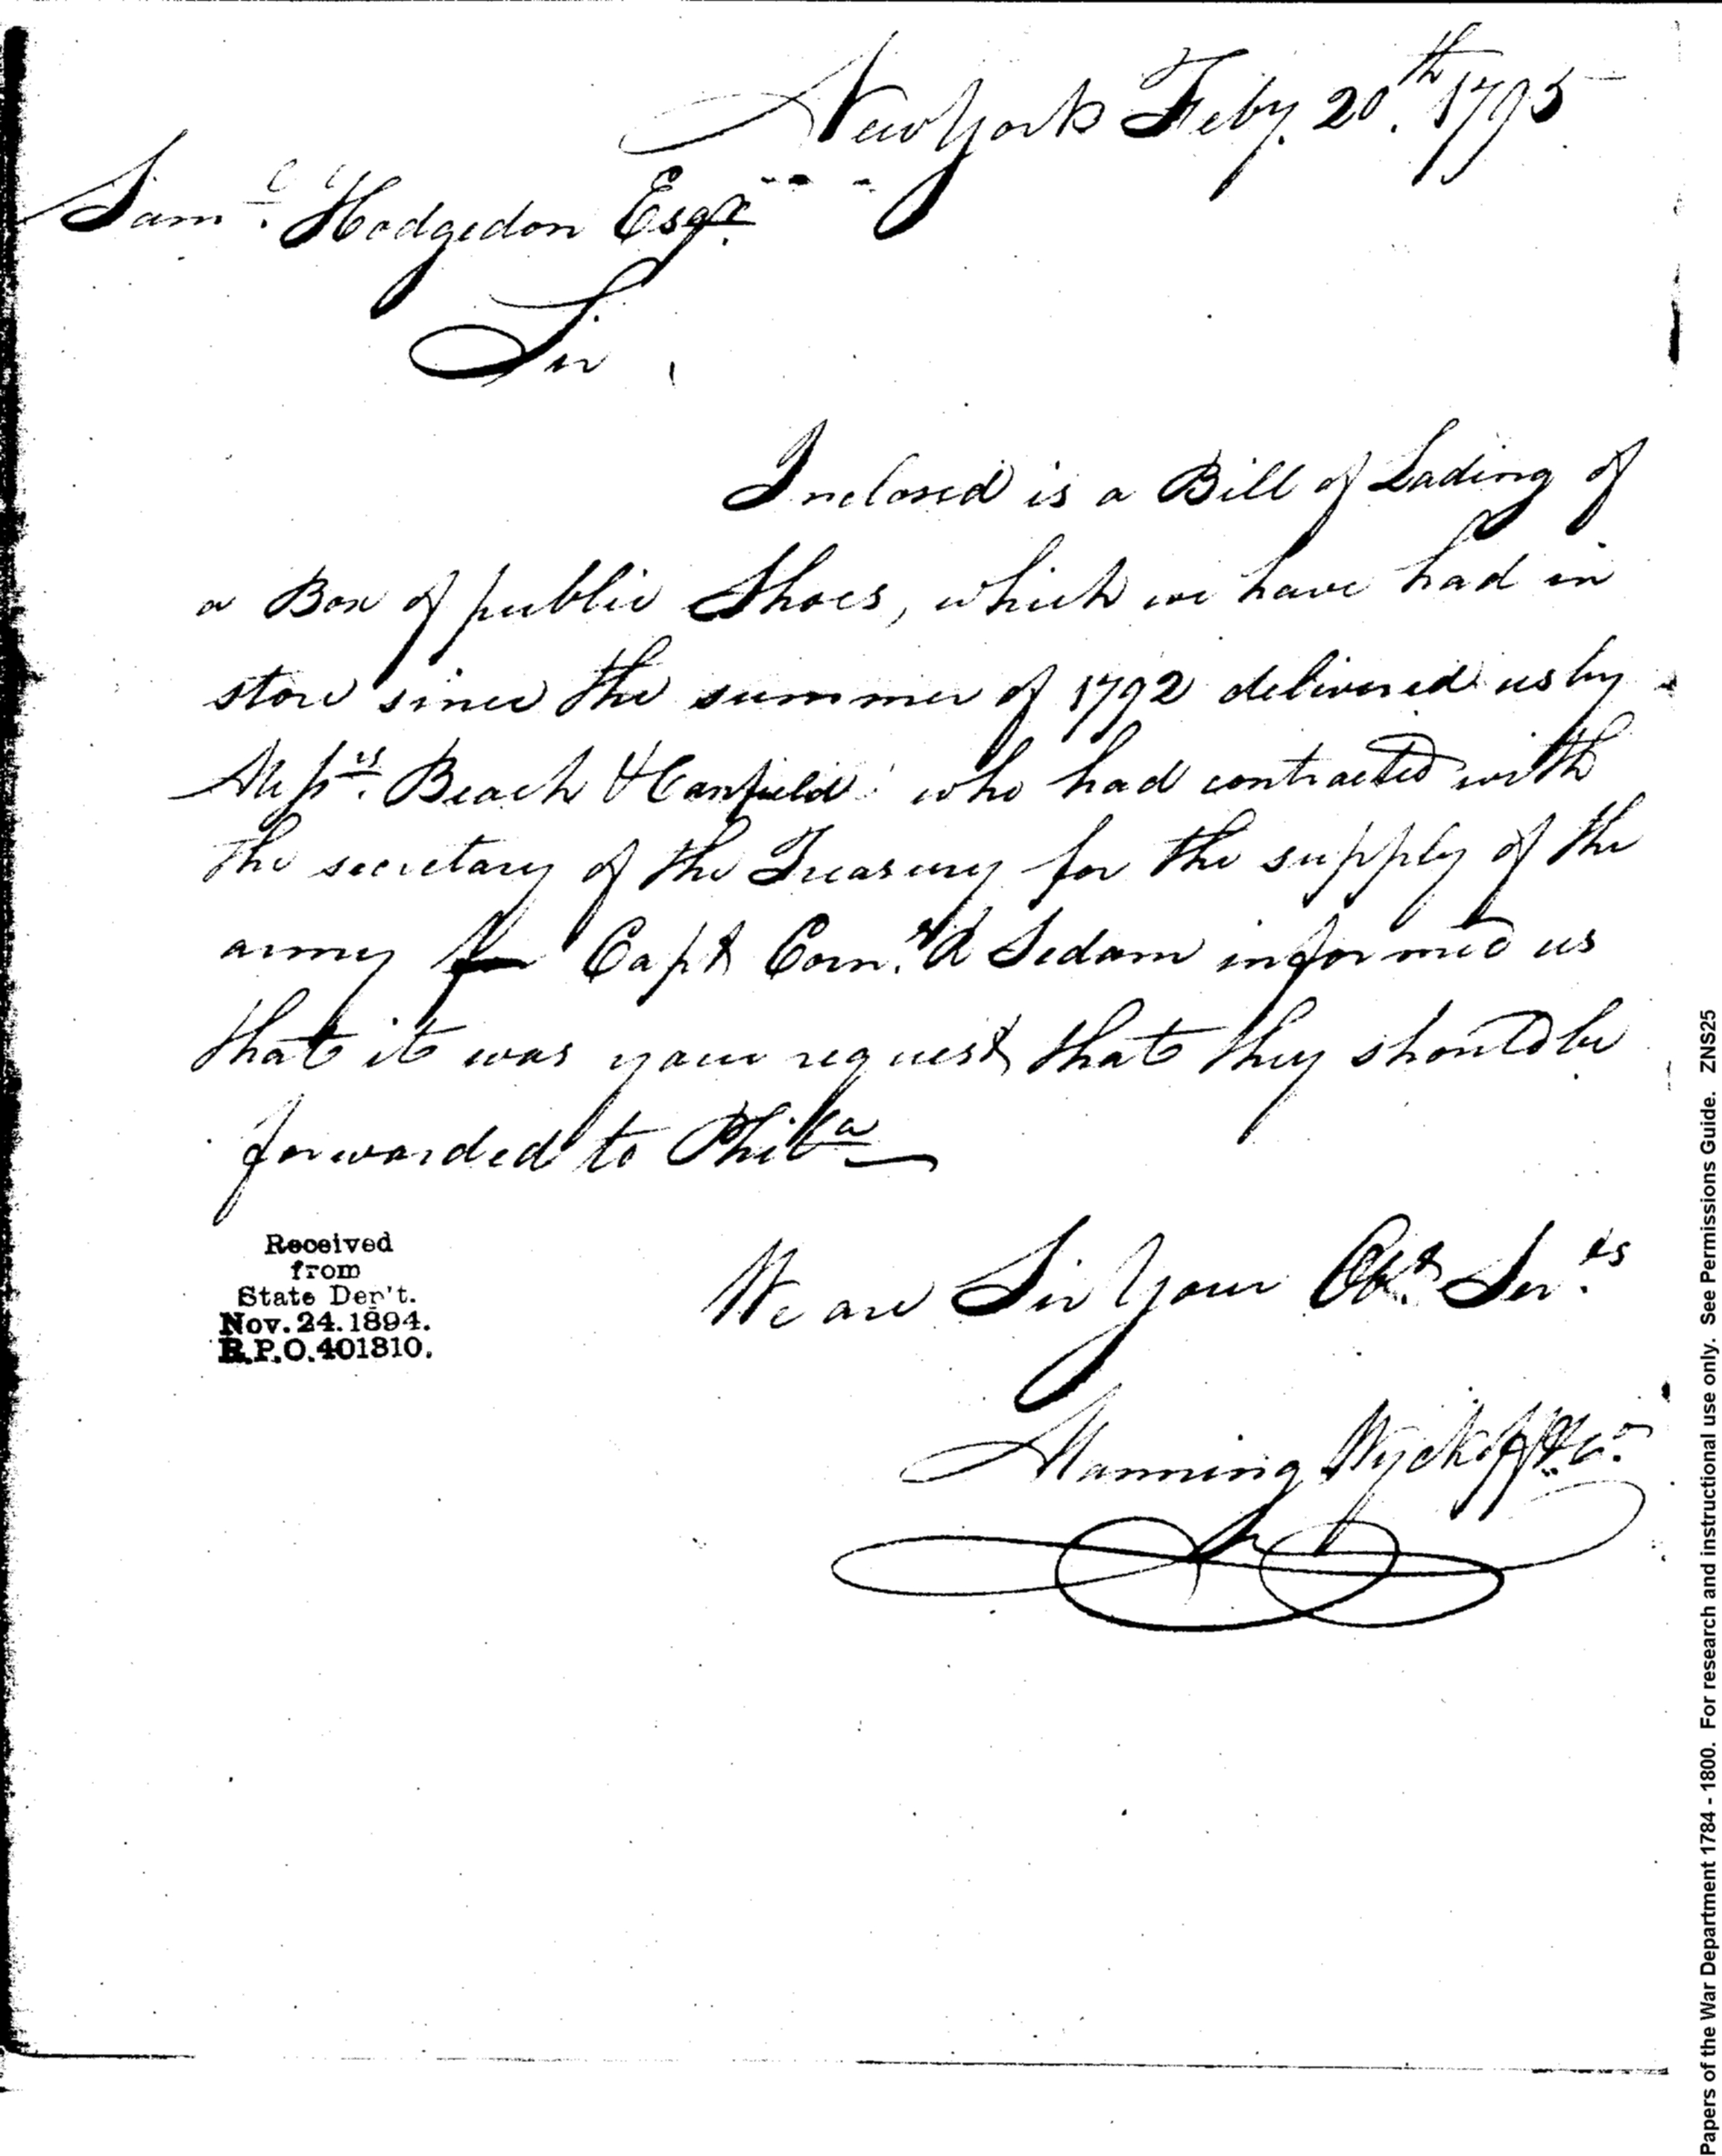 New York Feby. 20th. 1795
Saml. Hodgedon Esqr.
Sir
Inclosed is a Bill of Lading of
a Box of public Shoes, which we have had in
store since the summer of 1792 delivered us by
Messrs. Beach & Canfield who had contracted with
the secretary of the Treasury for the supply of the
army Capt Corn.s R Sedam informed us
that it was your request that they should be
forwarded to Phila
We are Sir Your Obt. Ser.ts
Manning Wyckoff & Co.
Received
from
State Dep't.
Nov. 24. 1894.
R.P.O. 401810.
Papers of the War Department 1784 - 1800. For research and instructional use only. See Permissions Guide. ZNS25